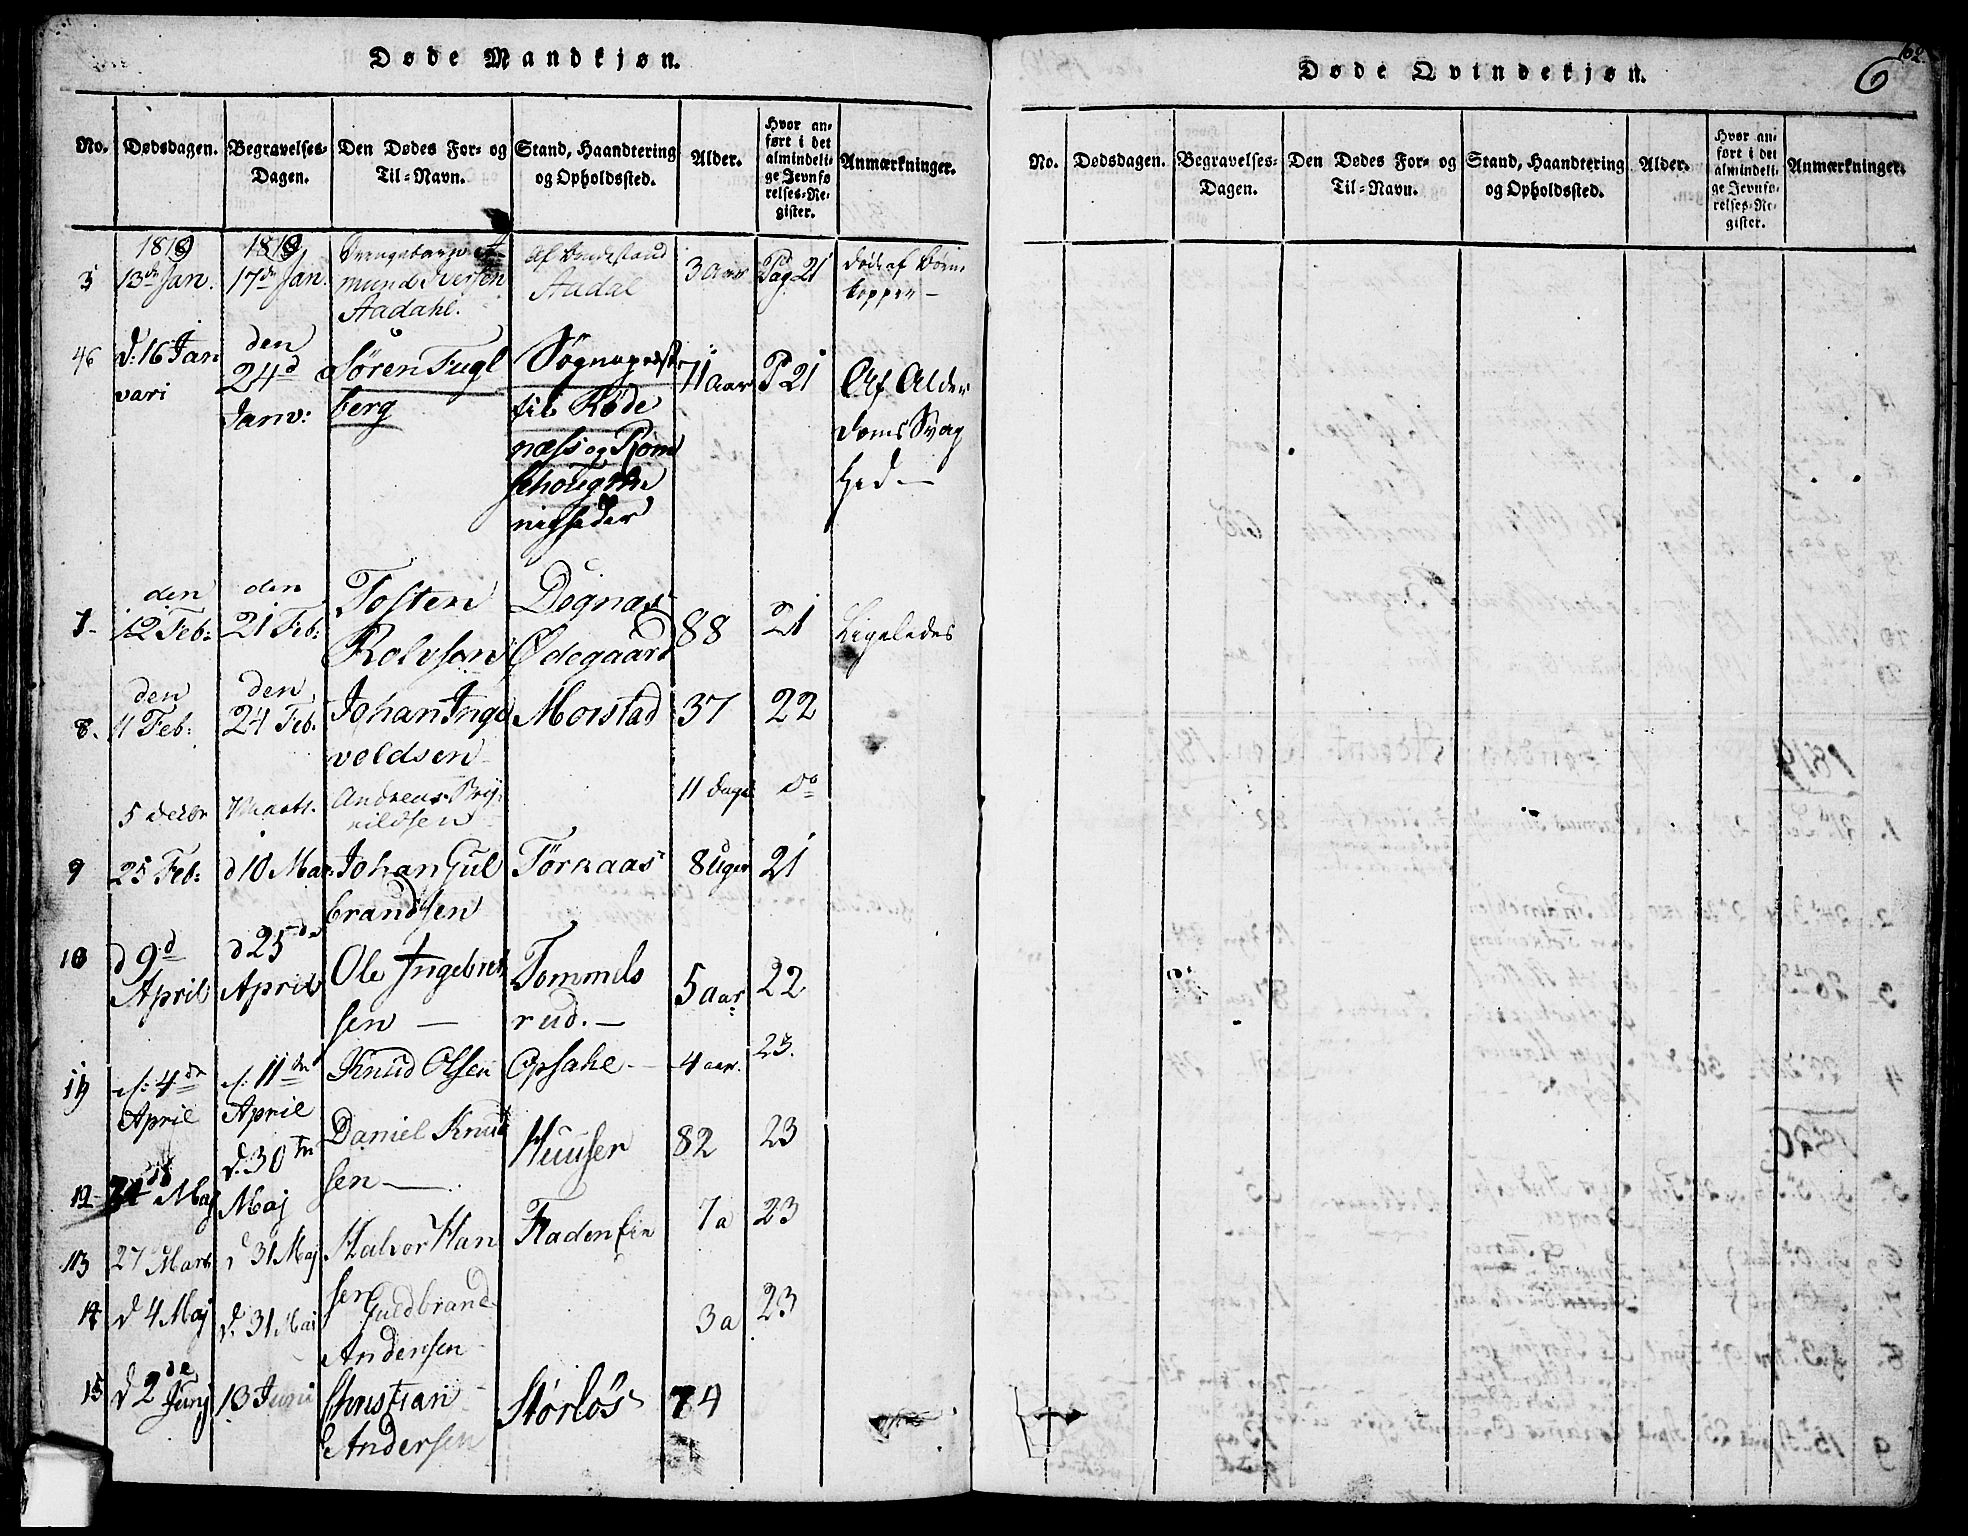 Døde Mandkjøn.
No. Dødsdagen. Begravelses-Dagen. Den Dødes For- og Til-Navn. Stand, Haandtering og Opholdssted. Alder. Hvor anført i det almindelige Jevnførelses-Register. Anmærkninger.
1819 1819
5 13de Jan. 17de Jan. mund Iversen Aadahl. Aadal 3 aar Pag 21 død af Børne kopper –
46 d: 16 Jan vari den 24d Janv: Søren Fugl berg Sognepræst til Røde næss og Røm 71 aar P 21 Af Alder doms Svag hed –
7- den 12 Feb: den 21 Feb: Tosten Rolvson Degnæs Ødegaard 88 21 Ligeledes
8. den 11 Feb: den 24 Feb. Johan Inge voldsen Morstad 37 22
5 11 Dage do
9 25 Feb: d 10 Mar: Johan Gul brandsen Tørnaas 8 Uger 21
10 d 9d April d 25de April Ole Ingebret sen — Tommels rud. — 5 aar 22
11 d: 4de April d: 11te April Knud Olsen Opsahl – 4 aar. 23.
12 Maj d. 30te Maj Daniel Knut sen — Huuser 82 23
13 27 Marts d 31 Maj Halvor Han sen Fladen 7 a 23
14 d 4 Maj d. 31 Mai Guldbrand Andersen 3 a 23
15 d 2de Junj 13 Juni Christian Andersen Størløs 74
Døde Qvindekjøn.
62
6
No. Dødsdagen. Begravelses-Dagen. Den Dødes For- og Til-Navn. Stand, Haandtering og Opholdssted. Alder. Hvor anført i det almindelige Jevnførelses-Register. Anmærkninger.